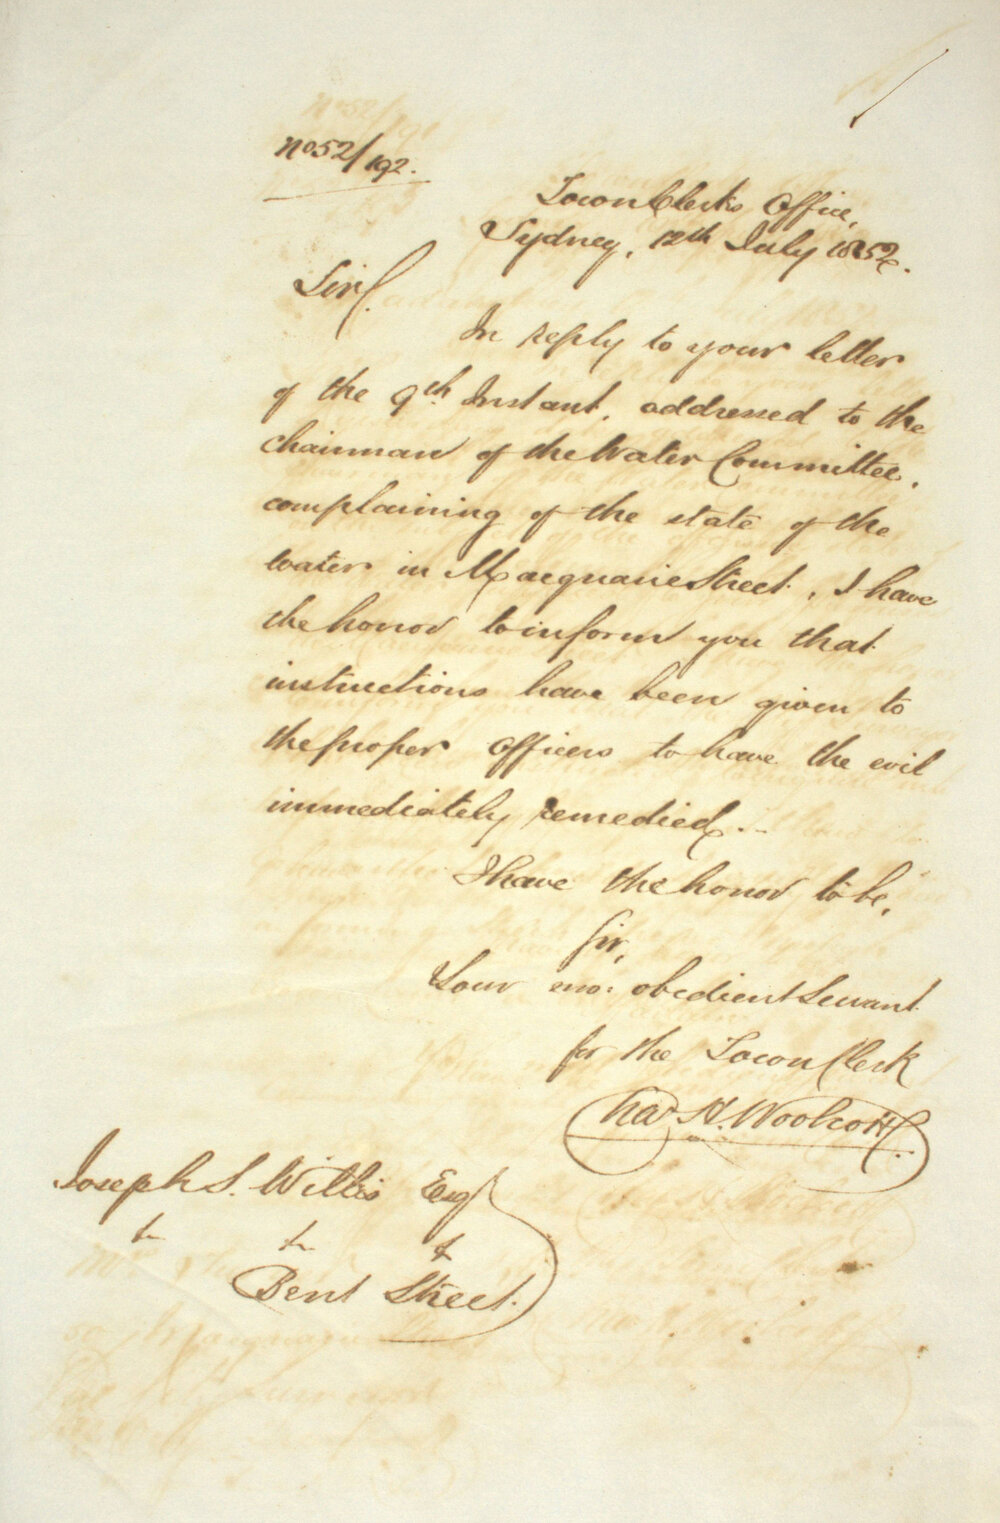 No 52/192.
Town Clerk's Office,
Sydney, 12th July 1852.
Sir,
In reply to your letter
of the 9th Instant, addressed to the
Chairman of the Water Committee,
complaining of the state of the
water in Macquarie Street, I have
the honor to inform you that
instructions have been given to
the proper Officers to have the evil
immediately remedied.
I have the honor to be,
Sir,
Your mo: obedient Servant
for the Town Clerk
Chas H. Woolcott
Joseph S. Willis Esq
Bent Street.